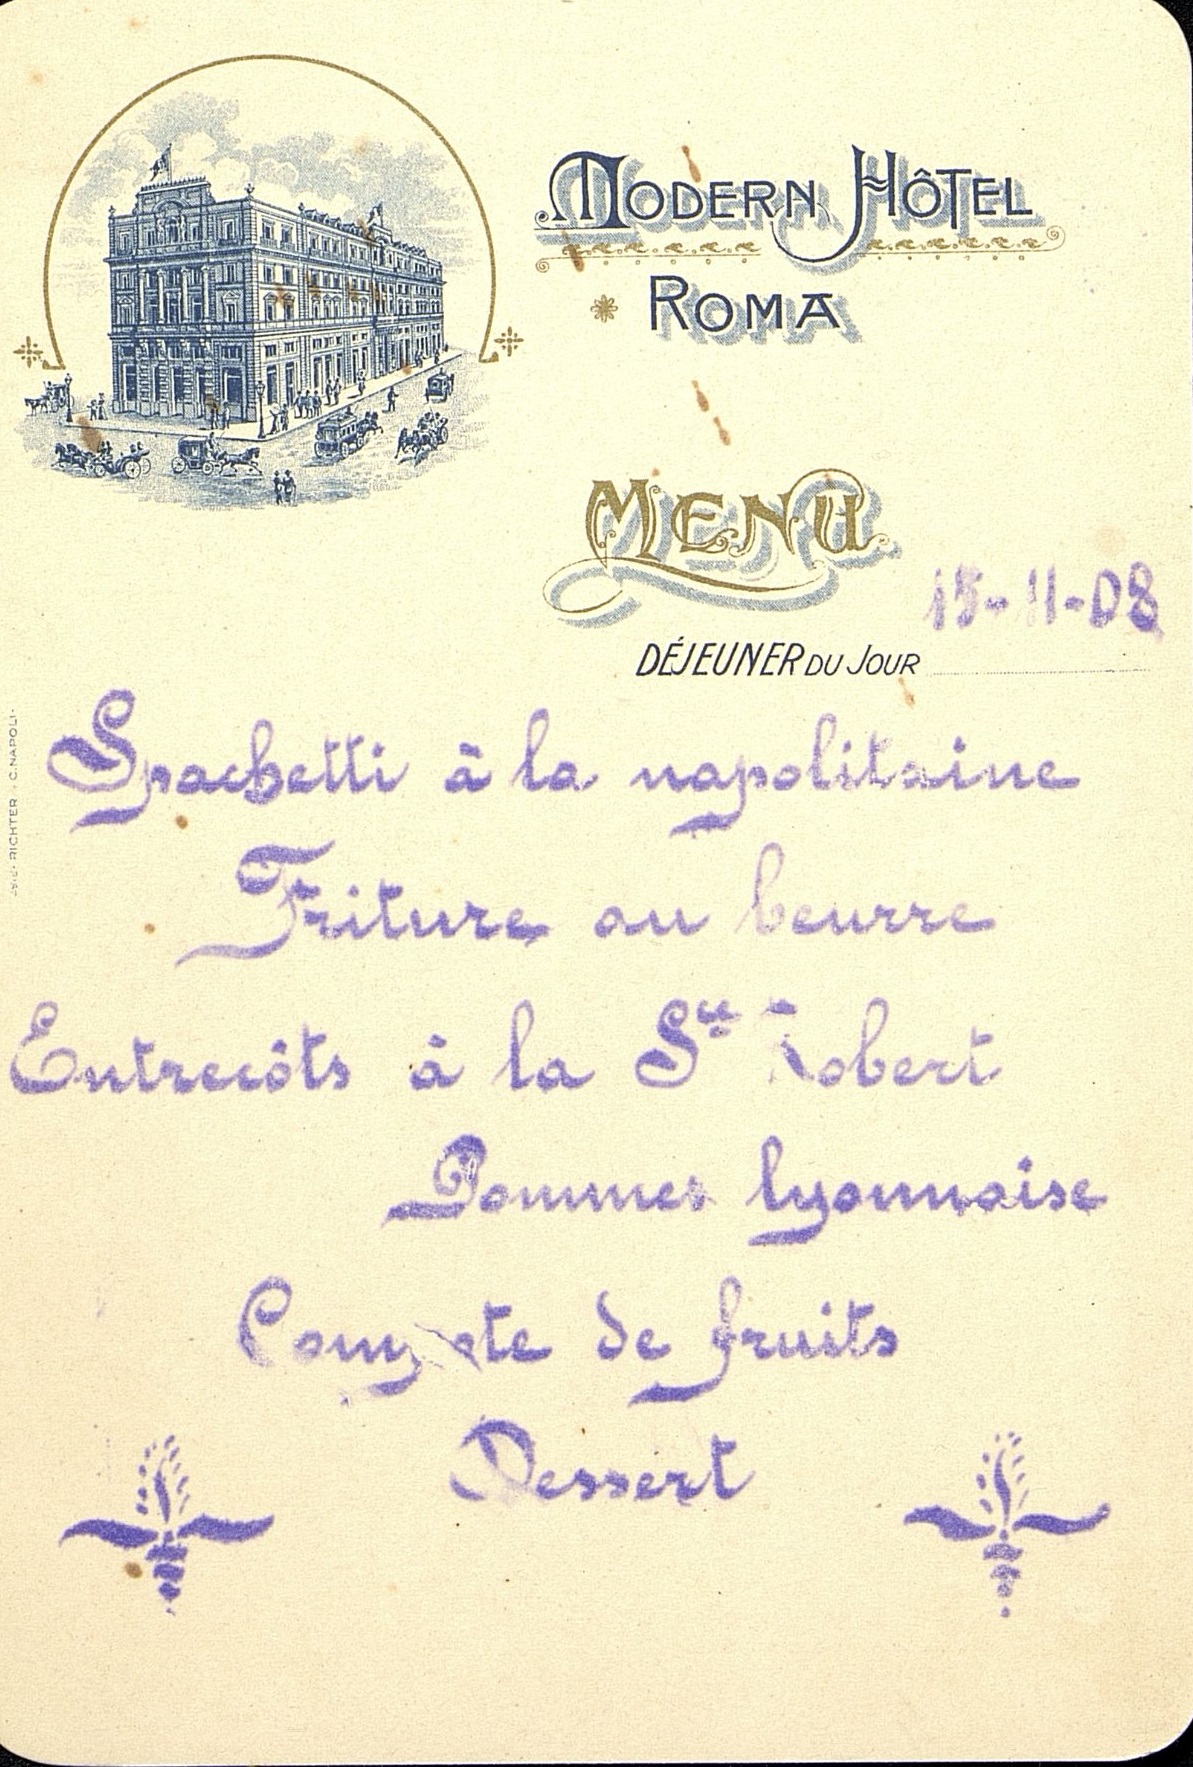 MODERN HÔTEL
ROMA
MENU
15-11-08
DÉJEUNER DU JOUR
Spachetti à la napolitaine
Friture au beurre
Entrecôts à la Sce Robert
Pommes lyonnaise
Compote de fruits
Dessert
RICHTER · C. NAPOLI ·